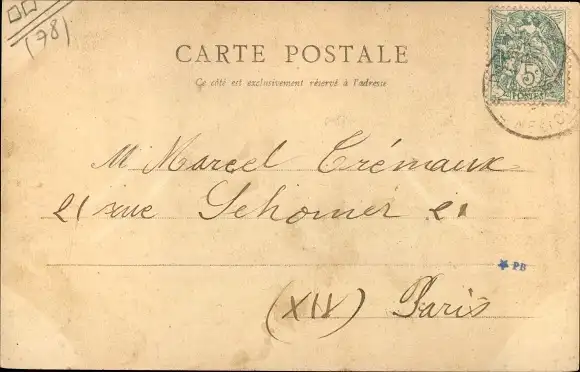 (78)
CARTE POSTALE
Ce côté est exclusivement réservé à l'adresse
5
M Marcel Crémaux
21 rue Schomer 21
PB
(XIV) Paris